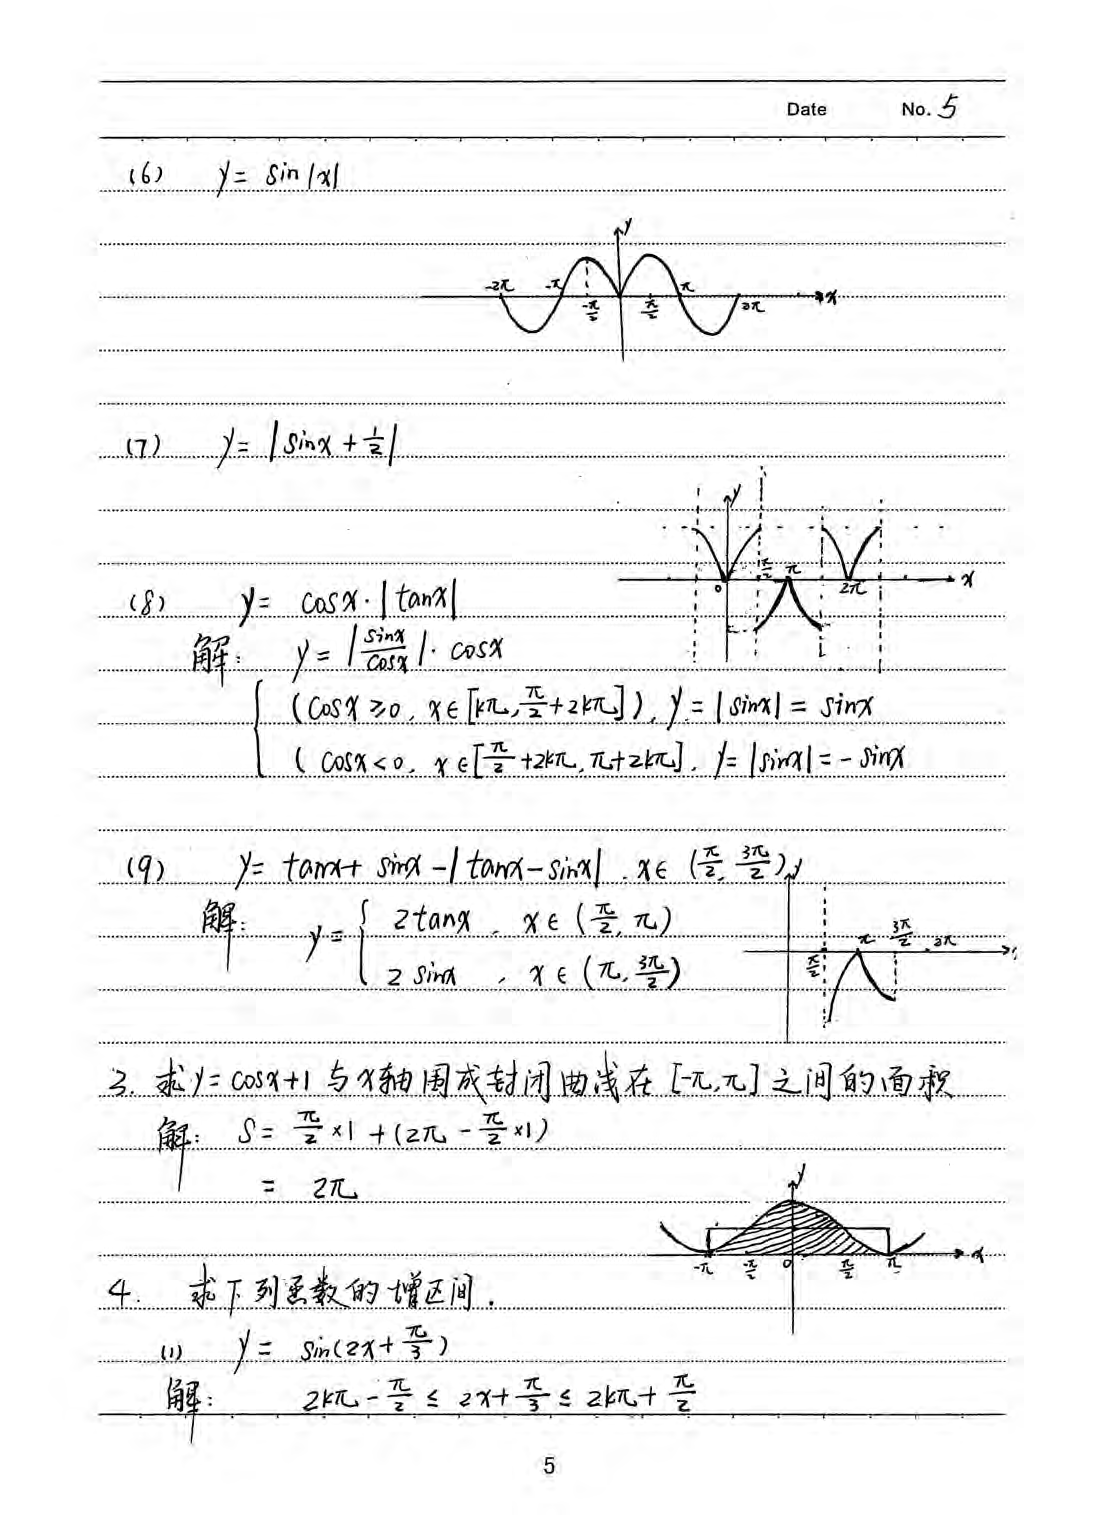 Date No. 5
(6) y = sin|x|
y
-2π -π π x
-π/2 π/2 2π
(7) y = |sinx + 1/2|
y
π/2 π x
0 2π
(8) y = cosx · |tanx|
解: y = |sinx/cosx| · cosx
{ (cosx ≥ 0, x ∈ [kπ, π/2 + 2kπ]), y = |sinx| = sinx
( cosx < 0, x ∈ [π/2 + 2kπ, π + 2kπ], y = |sinx| = - sinx
(9) y = tanx + sinx - |tanx - sinx|, x ∈ (π/2, 3π/2)
解: y = { 2tanx, x ∈ (π/2, π)
2 sinx, x ∈ (π, 3π/2)
y
π 3π/2 2π
π/2
3. 求y = cosx+1 与x轴围成封闭曲线在[-π, π]之间的面积
解: S = π/2 ×1 + (2π - π/2 ×1)
= 2π
y
-π -π/2 0 π/2 π x
4. 求下列函数的增区间.
(1) y = sin(2x + π/3)
解: 2kπ - π/2 ≤ 2x + π/3 ≤ 2kπ + π/2
5